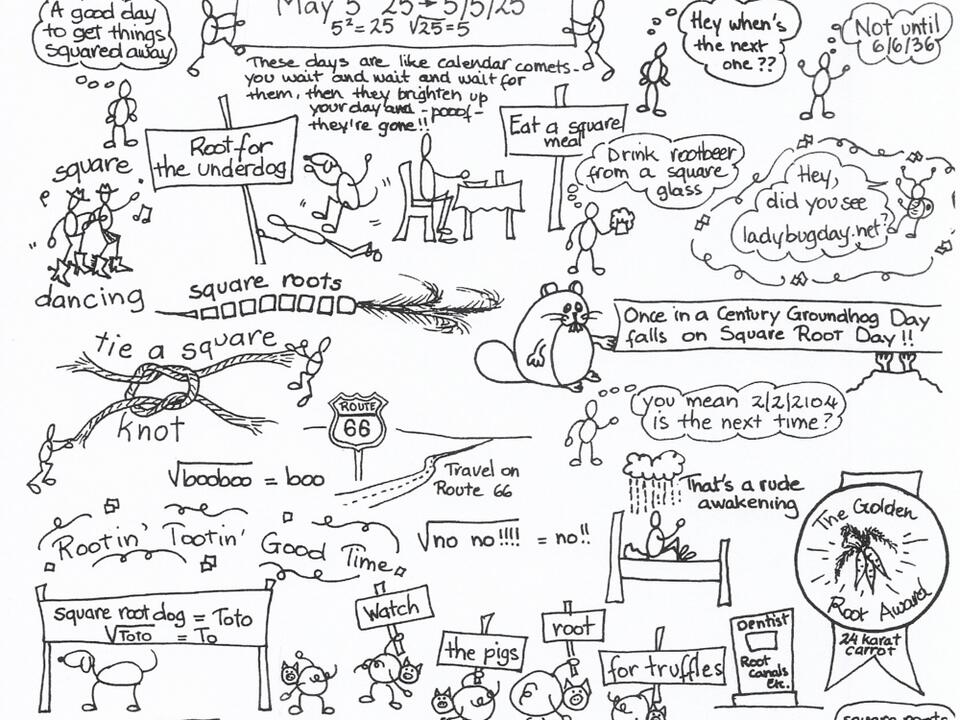 A good day
to get things
squared away
May 5 25 → 5/5/25
5²=25 √25=5
Hey when's
the next
one??
Not until
6/6/36
These days are like calendar comets-
you wait and wait and wait for
them, then they brighten up
your day and -pooof-
they're gone!!
Root for
the underdog
Eat a square
meal
Drink rootbeer
from a square
glass
Hey,
did you see
ladybugday.net?
square
dancing
square roots
Once in a Century Groundhog Day
falls on Square Root Day!!
tie a square
knot
you mean 2/2/2104
is the next time?
ROUTE
66
Travel on
Route 66
√booboo = boo
That's a rude
awakening
Rootin' Tootin' Good Time
√no no!!!! = no!!
The Golden
Root Award
24 karat
carrot
square root dog = Toto
√Toto = To
Watch
the pigs
root
for truffles
Dentist
Root
canals
etc.
square roots